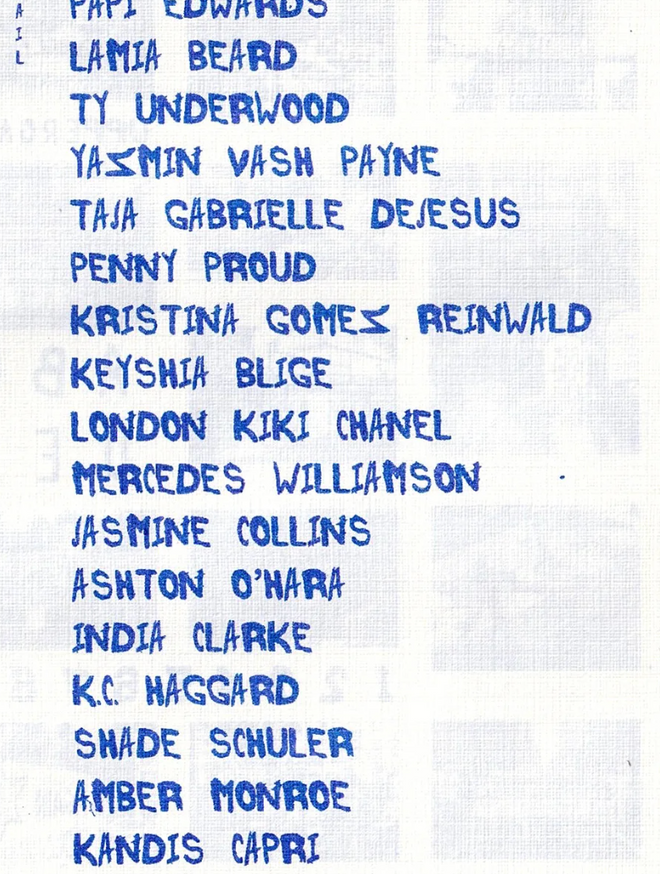 A
I
L
PAPI EDWARDS
LAMIA BEARD
TY UNDERWOOD
YAZMIN VASH PAYNE
TAJA GABRIELLE DEJESUS
PENNY PROUD
KRISTINA GOMEZ REINWALD
KEYSHIA BLIGE
LONDON KIKI CHANEL
MERCEDES WILLIAMSON
JASMINE COLLINS
ASHTON O'HARA
INDIA CLARKE
K.C. HAGGARD
SHADE SCHULER
AMBER MONROE
KANDIS CAPRI